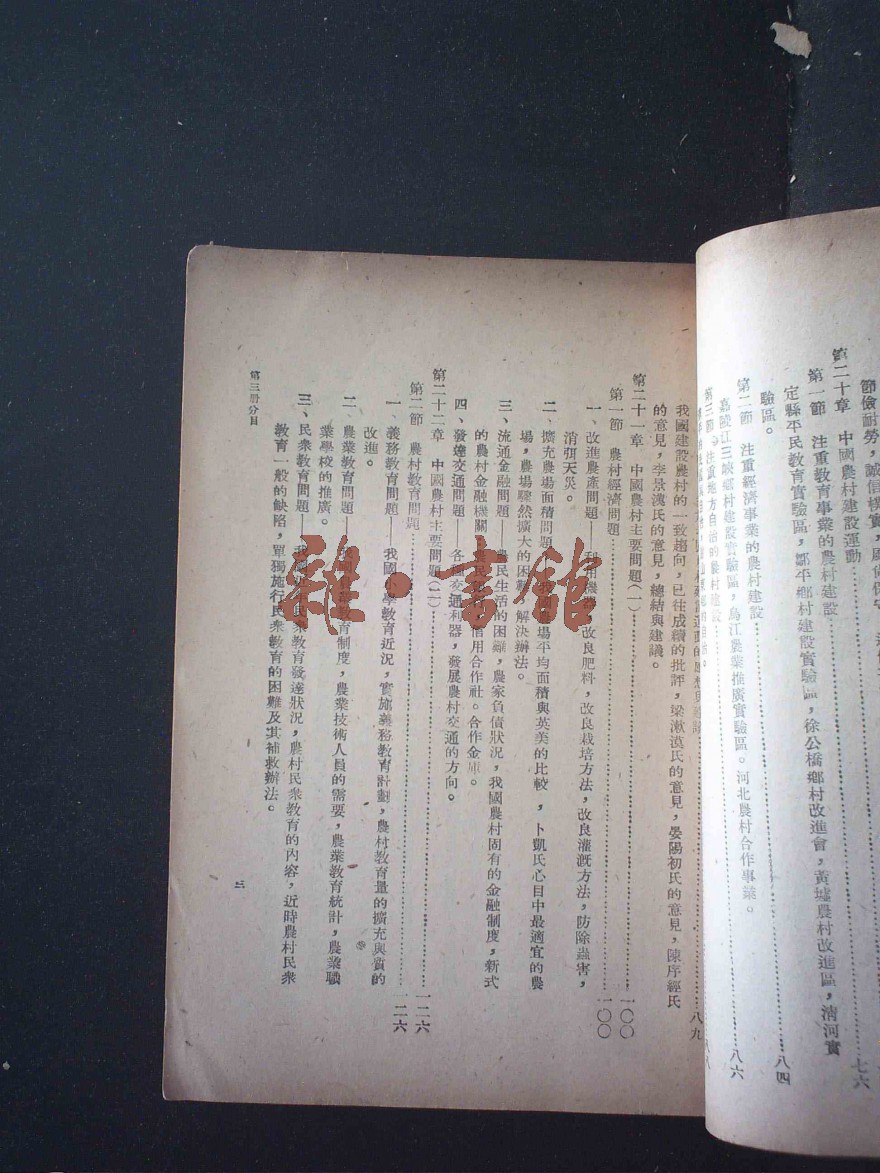 節儉耐勞，誠信樸實，
第二十章 中國農村建設運動……七六
第一節 注重教育事業的農村建設……八四
定縣平民教育實驗區，鄒平鄉村建設實驗區，徐公橋鄉村改進會，黃墟農村改進區，清河實
驗區。
第二節 注重經濟事業的農村建設……八六
嘉陵江三峽鄉村建設實驗區，烏江農業推廣實驗區。河北農村合作事業。
第三節 注重地方自治的農村建設……八八
八九
我國建設農村的一致趨向，已往成績的批評，梁漱溟氏的意見，晏陽初氏的意見，陳序經氏
的意見，李景漢氏的意見，總結與建議。
第二十一章 中國農村主要問題(一)……一〇〇
第一節 農村經濟問題……一〇〇
一、改進農產問題——利用機器，改良肥料，改良栽培方法，改良灌漑方法，防除蟲害，
消弭天災。
二、擴充農場面積問題——我國農場平均面積與英美的比較，卜凱氏心目中最適宜的農
場，農場驟然擴大的困難，解決辦法。
三、流通金融問題——農民生活的困難，農家負債狀況，我國農村固有的金融制度，新式
的農村金融機關，農民銀行，信用合作社。合作金庫。
四、發達交通問題——各種交通利器，發展農村交通的方向。
第二十二章 中國農村主要問題(二)……一二六
第二節 農村教育問題……一二六
一、義務教育問題——我國小學教育近況，實施義務教育計劃，農村教育量的擴充與質的
改進。
二、農業教育問題——我國農業教育制度，農業技術人員的需要，農業教育統計，農業職
業學校的推廣。
三、民衆教育問題——我國近年民衆教育發達狀況，農村民衆教育的內容，近時農村民衆
教育一般的缺陷，單獨施行民衆教育的困難及其補救辦法。
第三册分目
三
雜·書館